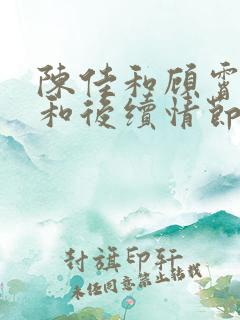 陳佳和顧雷
和後續情節
封旗印轩
未经同意禁止转载